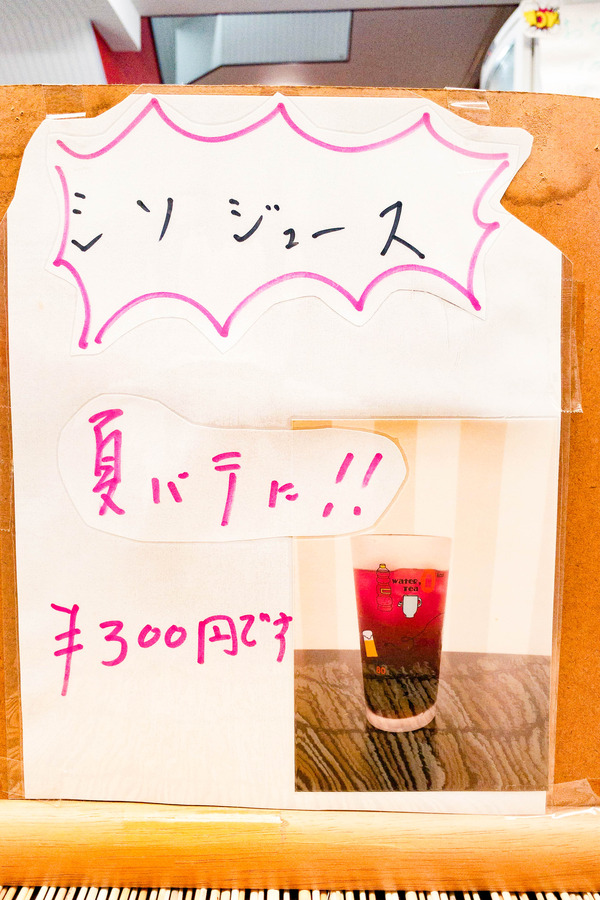 シソジュース
夏バテに!!
¥300円です
water,
tea